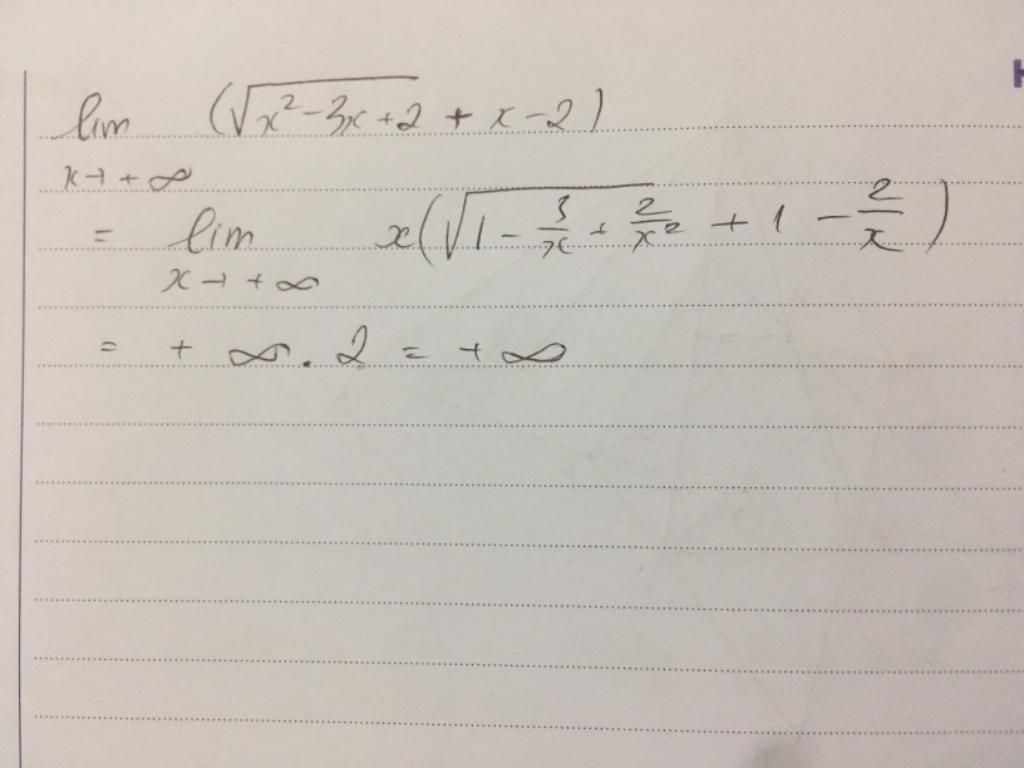 lim (√(x²-3x+2) + x-2)
x→+∞
= lim x(√(1 - 3/x + 2/x²) + 1 - 2/x)
x→+∞
= +∞.2 = +∞